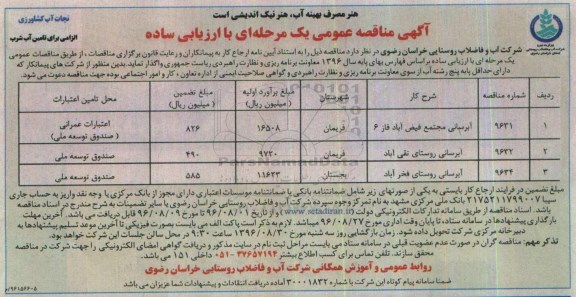 هنر مصرف بهینه آب، هنر نیک اندیشی است
نجات آب کشاورزی
الزامی برای تامین آب شرب
آگهی مناقصه عمومی یک مرحله‌ای با ارزیابی ساده
شرکت آب و فاضلاب روستایی خراسان رضوی در نظر دارد مناقصه ذیل را به استناد آیین نامه ارجاع کار به پیمانکاران و رعایت قانون برگزاری مناقصات ، از طریق مناقصات عمومی
یک مرحله ای با ارزیابی ساده براساس فهارس بهای پایه سال ۱۳۹۶ معاونت برنامه ریزی و نظارت راهبردی ریاست جمهوری واگذار نماید. بدین منظور از شرکت های پیمانکار که
دارای حداقل پایه پنج رشته آب از سوی معاونت برنامه ریزی و نظارت راهبردی و گواهی صلاحیت ایمنی از اداره تعاون ، کار و امور اجتماعی بوده جهت مناقصه دعوت می شود.
ردیف شماره مناقصه شرح کار شهرستان مبلغ برآورد اولیه ( میلیون ریال) مبلغ تضمین ( میلیون ریال) محل تامین اعتبارات
۱ ۹۶۳۱ آبرسانی مجتمع فیض آباد فاز ۶ فریمان ۱۶۵۰۸ ۸۲۶ اعتبارات عمرانی ( صندوق توسعه ملی)
۲ ۹۶۳۲ آبرسانی روستای تقی آباد فریمان ۹۷۲۰ ۴۹۰ صندوق توسعه ملی
۳ ۹۶۳۴ آبرسانی روستای فخر آباد بجستان ۱۱۶۲۳ ۵۸۵ صندوق توسعه ملی
مبلغ تضمین در فرایند ارجاع کار بایستی به یکی از صورتهای زیر شامل ضمانتنامه بانکی یا ضمانتنامه موسسات اعتباری دارای مجوز از بانک مرکزی یا وجه نقد واریز به حساب جاری
سیبا ۲۱۷۵۲۱۱۷۹۹۰۰۷ بانک ملی مرکزی مشهد به نام تمرکز وجوه سپرده شرکت آب و فاضلاب روستایی خراسان رضوی یا سایر تضمینات به شرح مندرج در اسناد مناقصه
باشد. اسناد مناقصه از طریق سامانه تدارکات الکترونیکی دولت (www.setadiran.ir) و از تاریخ ۹۶/۰۸/۰۱ تا مورخ ۹۶/۰۸/۰۹ قابل دریافت می باشد. آخرین مهلت
بارگذاری پیشنهادها در سامانه ستاد، تا پایان وقت اداری مورخ ۹۶/۰۸/۲۷ میباشد. لازم به ذکر است پاکت الف می بایست بصورت فیزیکی تا آخرین موعد تسلیم پیشنهادها به
دبیرخانه مرکزی شرکت تحویل داده شود. زمان بازگشایی روز سه شنبه مورخ ۹۶/۰۸/۳۰ ساعت ۹:۳۰ در محل سالن جلسات این شرکت خواهد بود.
تذکر مهم: مناقصه گران در صورت عدم عضویت قبلی در سامانه ستاد می بایست مراحل ثبت نام در سایت مذکور و دریافت گواهی امضای الکترونیکی را جهت شرکت در مناقصه
محقق سازند. تلفن تماس برای کسب اطلاع بیشتر ۳۷۶۵۷۱۹۴ - ۰۵۱ داخلی ۱۵۱ می باشد.
روابط عمومی و آموزش همگانی شرکت آب و فاضلاب روستایی خراسان رضوی
ضمنا سامانه پیام کوتاه این شرکت با شماره ۳۰۰۰۱۸۳۲ آماده دریافت انتقادات و پیشنهادات شما عزیزان می باشد